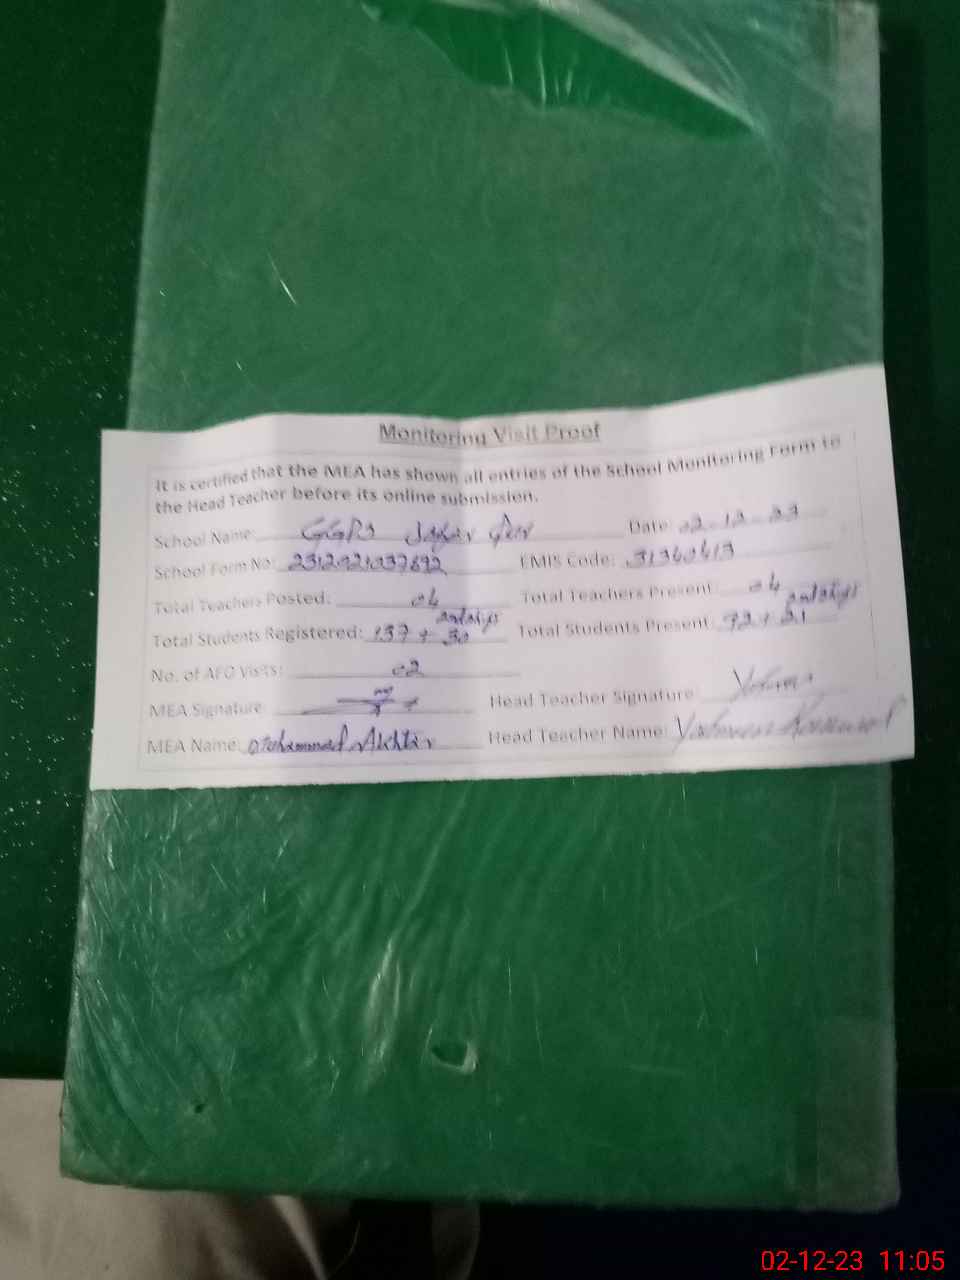 Monitoring Visit Proof
It is certified that the MEA has shown all entries of the School Monitoring Form to
the Head Teacher before its online submission.
School Name: GGPS Date: 02-12-23
School Form No: EMIS Code: 31340413
Total Teachers Posted: 04 Total Teachers Present: 04
Total Students Registered: 137 + 30 Total Students Present: 92 + 21
No. of AEO Visits: 02
MEA Signature: Head Teacher Signature:
MEA Name: Muhammad Akhtar Head Teacher Name:
02-12-23 11:05